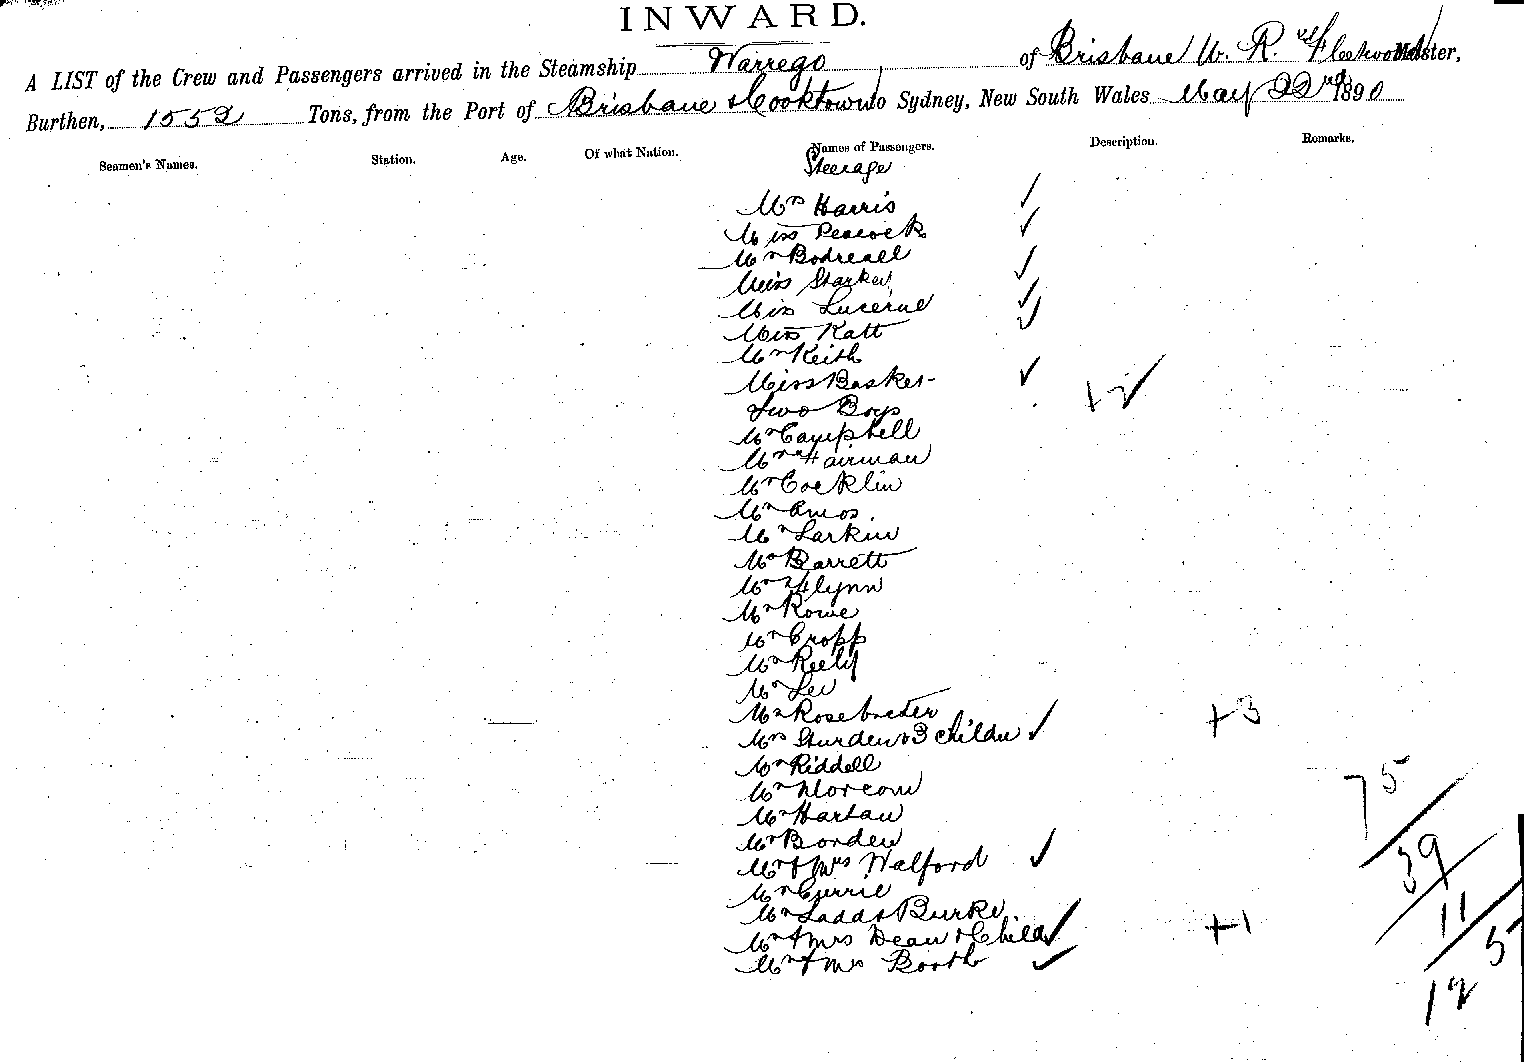 INWARD.
A LIST of the Crew and Passengers arrived in the Steamship Warrego of Brisbane W. R. Master,
Burthen, 1552 Tons, from the Port of Brisbane & Cooktown to Sydney, New South Wales May 22nd 1890
Seamen's Names. Station. Age. Of what Nation. Names of Passengers. Description. Remarks.
Steerage
Mrs Harris ✓
Miss Peacock ✓
Mr Bodreall
Miss Starkey ✓
Miss Lucerne ✓
Miss Katt ✓
Mr Keith
Miss Basker ✓
Two Boys +2 ✓
Mr Campbell
Mr Hairman
Mr Cocklin
Mr Amos.
Mr Larkin
Mr Barrett
Mr Flynn
Mr Rowe
Mr Cropp
Mr Keely
Mr Lee
Mr
Mrs Sturden & 3 childn ✓ +3
Mr Riddell
Mr Morcom
Mr Hartau
Mr Borden
Mr & Mrs Walford ✓
Mr Currie
Mr Ladd & Burke
Mr & Mrs Dean & Child ✓ +1
Mr & Mrs Booth ✓
75
39
11
5
12